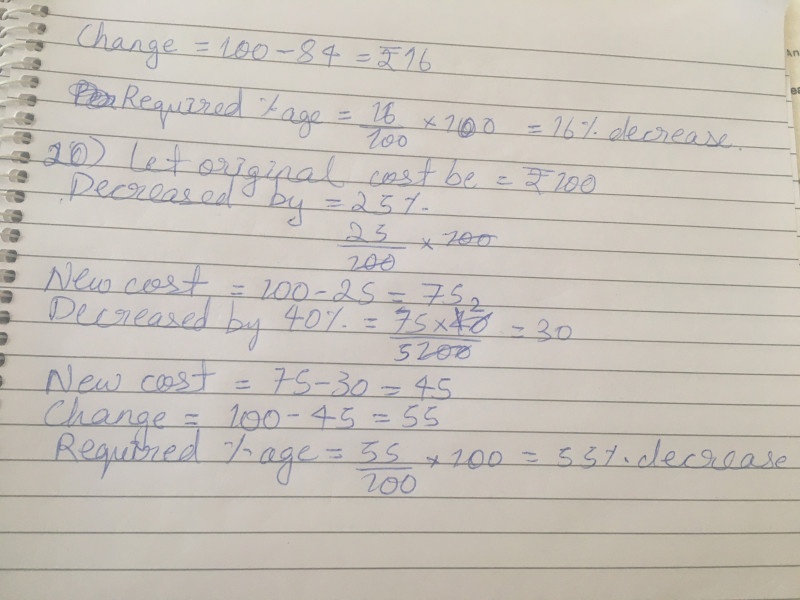 Change = 100 - 84 = ₹16
Required %age = 16/100 × 100 = 16% decrease.
20) Let original cost be = ₹100
Decreased by = 25%.
25/100 × 100
New cost = 100 - 25 = 75
Decreased by 40% = 75×40 2/5 100 = 30
New cost = 75 - 30 = 45
Change = 100 - 45 = 55
Required %age = 55/100 × 100 = 55% decrease